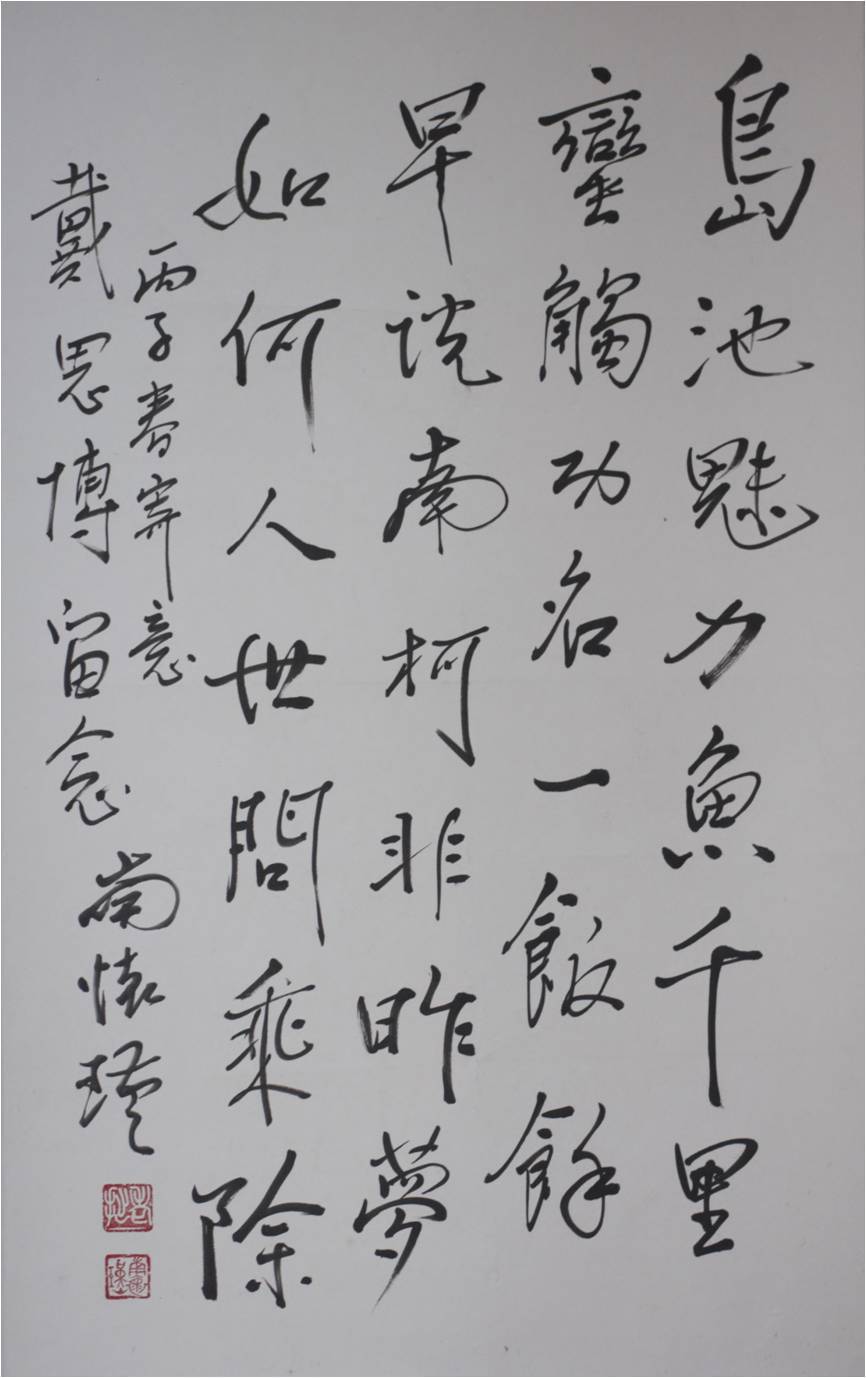 島池魅力魚千里
蠻觸功名一飯餘
早説南柯非昨夢
如何人世問乘除
丙子春寄意
戴思博留念
南懷瑾